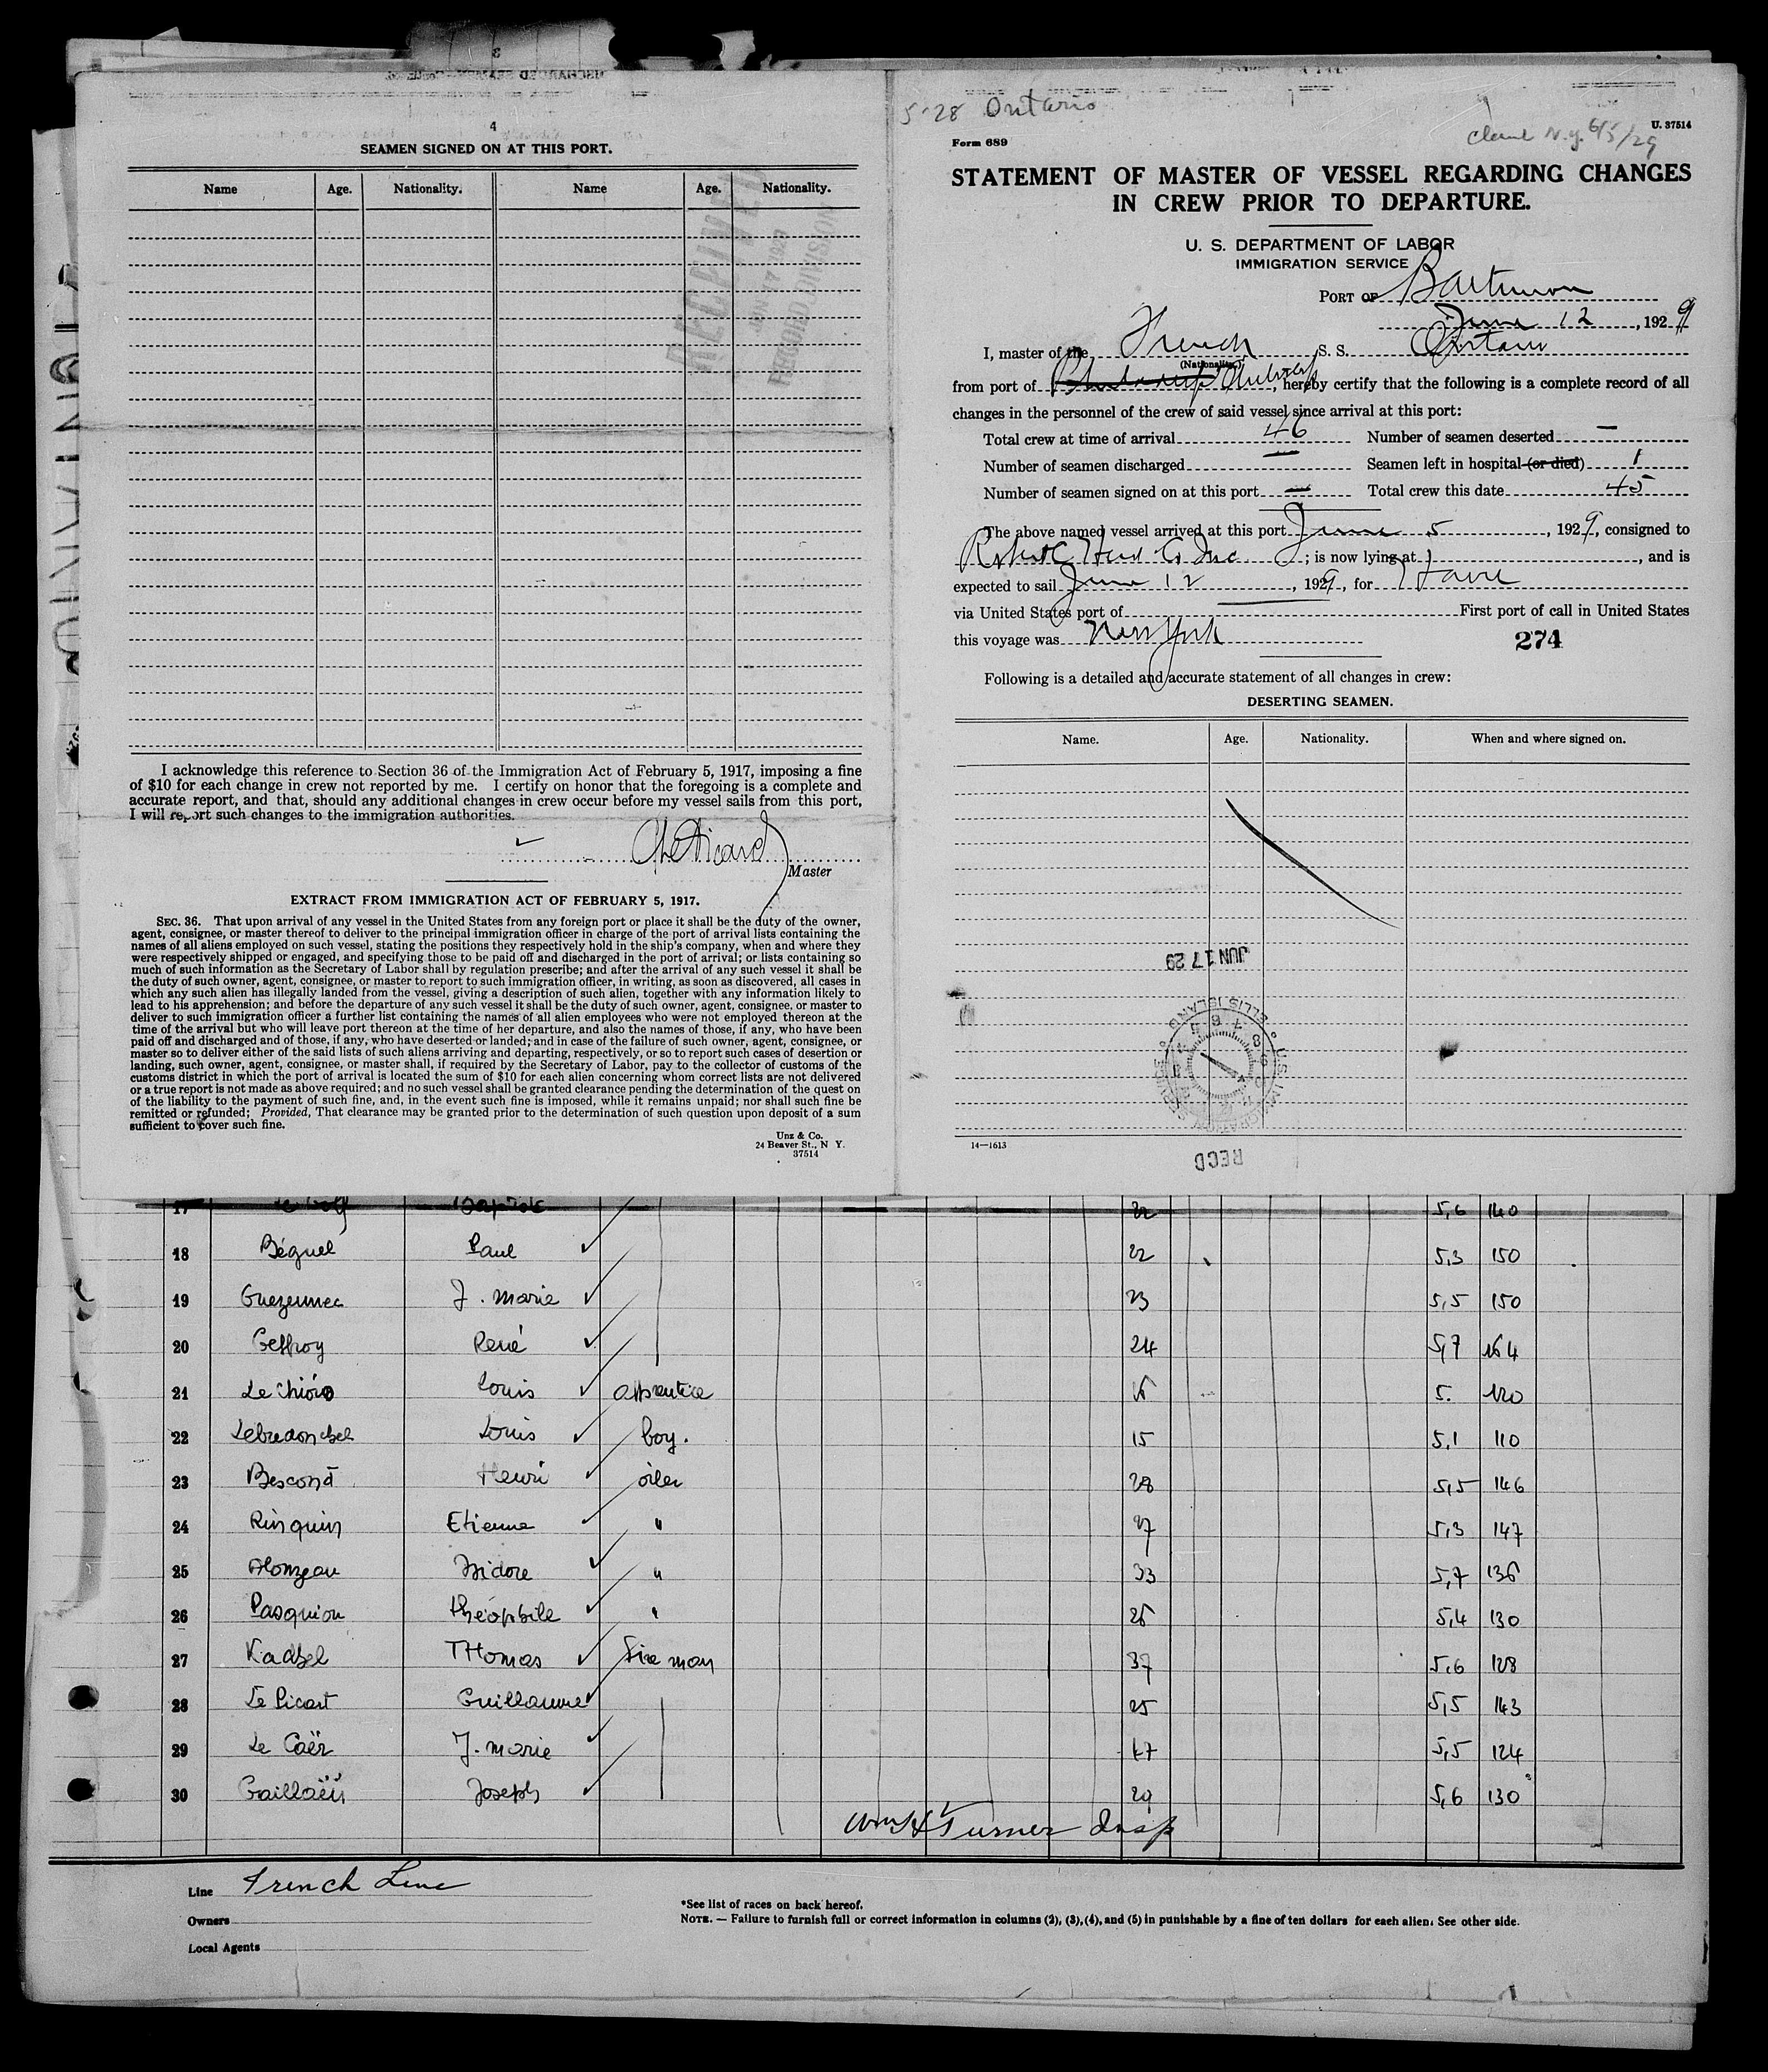 4
SEAMEN SIGNED ON AT THIS PORT.
Name Age. Nationality. Name Age. Nationality.
RECEIVED
JUN 17 1929
RECORD DIVISION
I acknowledge this reference to Section 36 of the Immigration Act of February 5, 1917, imposing a fine
of $10 for each change in crew not reported by me. I certify on honor that the foregoing is a complete and
accurate report, and that, should any additional changes in crew occur before my vessel sails from this port,
I will report such changes to the immigration authorities.
Master
EXTRACT FROM IMMIGRATION ACT OF FEBRUARY 5, 1917.
SEC. 36. That upon arrival of any vessel in the United States from any foreign port or place it shall be the duty of the owner,
agent, consignee, or master thereof to deliver to the principal immigration officer in charge of the port of arrival lists containing the
names of all aliens employed on such vessel, stating the positions they respectively hold in the ship's company, when and where they
were respectively shipped or engaged, and specifying those to be paid off and discharged in the port of arrival; or lists containing so
much of such information as the Secretary of Labor shall by regulation prescribe; and after the arrival of any such vessel it shall be
the duty of such owner, agent, consignee, or master to report to such immigration officer, in writing, as soon as discovered, all cases in
which any such alien has illegally landed from the vessel, giving a description of such alien, together with any information likely to
lead to his apprehension; and before the departure of any such vessel it shall be the duty of such owner, agent, consignee, or master to
deliver to such immigration officer a further list containing the names of all alien employees who were not employed thereon at the
time of the arrival but who will leave port thereon at the time of her departure, and also the names of those, if any, who have been
paid off and discharged and of those, if any, who have deserted or landed; and in case of the failure of such owner, agent, consignee, or
master so to deliver either of the said lists of such aliens arriving and departing, respectively, or so to report such cases of desertion or
landing, such owner, agent, consignee, or master shall, if required by the Secretary of Labor, pay to the collector of customs of the
customs district in which the port of arrival is located the sum of $10 for each alien concerning whom correct lists are not delivered
or a true report is not made as above required; and no such vessel shall be granted clearance pending the determination of the quest on
of the liability to the payment of such fine, and, in the event such fine is imposed, while it remains unpaid; nor shall such fine be
remitted or refunded; Provided, That clearance may be granted prior to the determination of such question upon deposit of a sum
sufficient to cover such fine.
Unz & Co.
24 Beaver St., N Y.
37514
5-28 Ontario
N.Y. 6/5/29
U. 37514
Form 689
STATEMENT OF MASTER OF VESSEL REGARDING CHANGES
IN CREW PRIOR TO DEPARTURE.
U. S. DEPARTMENT OF LABOR
IMMIGRATION SERVICE
PORT OF Baltimore
June 12, 1929
I, master of the French S. S. Ontario
(Nationality)
from port of, hereby certify that the following is a complete record of all
changes in the personnel of the crew of said vessel since arrival at this port:
Total crew at time of arrival 46 Number of seamen deserted —
Number of seamen discharged — Seamen left in hospital (or died) 1
Number of seamen signed on at this port — Total crew this date 45
The above named vessel arrived at this port June 5, 1929, consigned to
Robert C Herd Co Inc; is now lying at, and is
expected to sail June 12, 1929, for Havre
via United States port of First port of call in United States
this voyage was New York
274
Following is a detailed and accurate statement of all changes in crew:
DESERTING SEAMEN.
Name. Age. Nationality. When and where signed on.
JUN 17 29
U.S. IMMIGRATION SERVICE ELLIS ISLAND
RECD
14—1613
17 22 5,6 140
18 Béguel Paul 22 5,3 150
19 Guezennec J. marie 23 5,5 150
20 Geffroy René 24 5,7 164
21 Louis apprentice 16 5. 120
22 Louis boy. 15 5,1 110
23 Bescond Henri oiler 28 5,5 146
24 Rinquin Etienne " 27 5,3 147
25 Isidore " 33 5,7 136
26 Pasquiou théophile " 26 5,4 130
27 THomas Fire man 37 5,6 128
28 Le Picart Guillaume 25 5,5 143
29 Le Caër J. marie 47 5,5 124
30 Joseph 20 5,6 130
Wm H Turner Insp
Line French Line
Owners
Local Agents
*See list of races on back hereof.
NOTE. — Failure to furnish full or correct information in columns (2), (3), (4), and (5) in punishable by a fine of ten dollars for each alien. See other side.